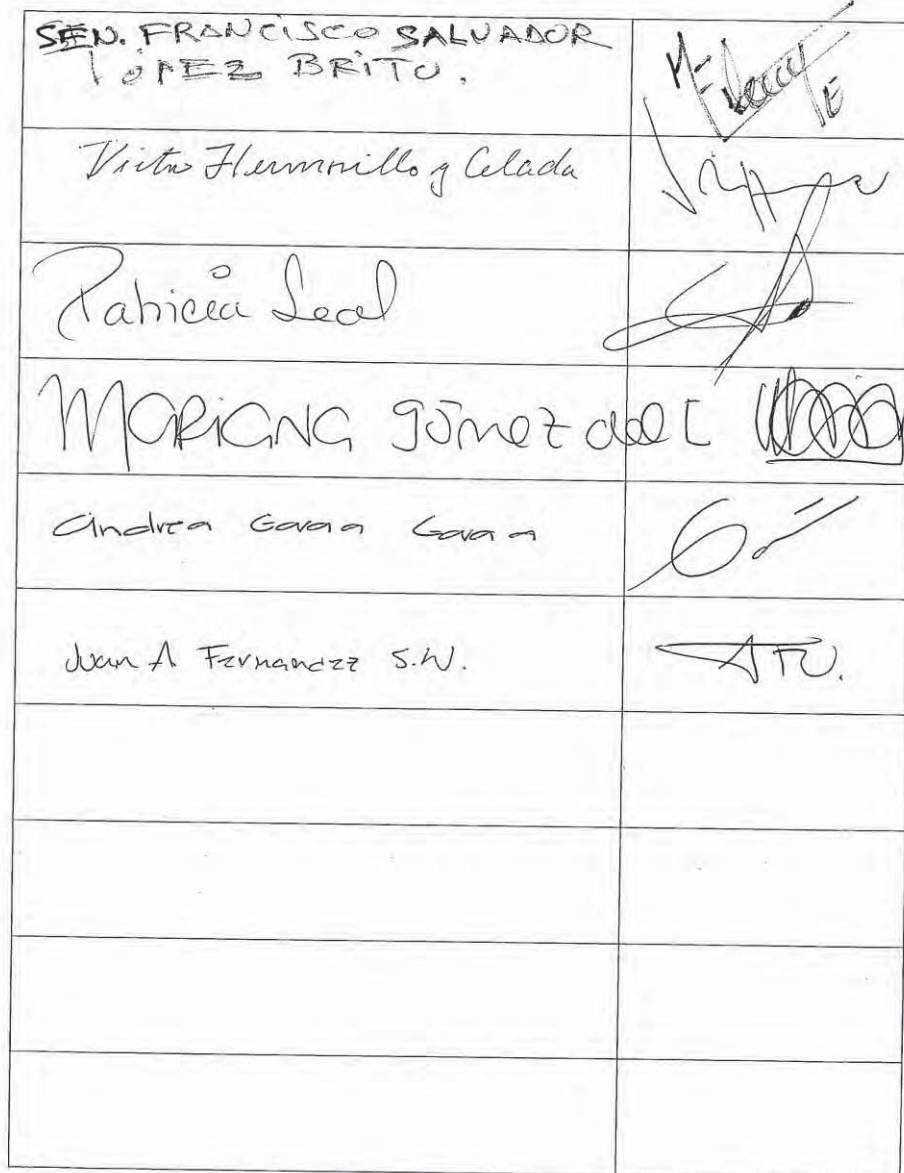 SEN. FRANCISCO SALVADOR
LÓPEZ BRITO.
Victor Hermosillo y Celada
Patricia Leal
MARIANA Gómez del C
Andrea García García
Juan A Fernandez S.N.